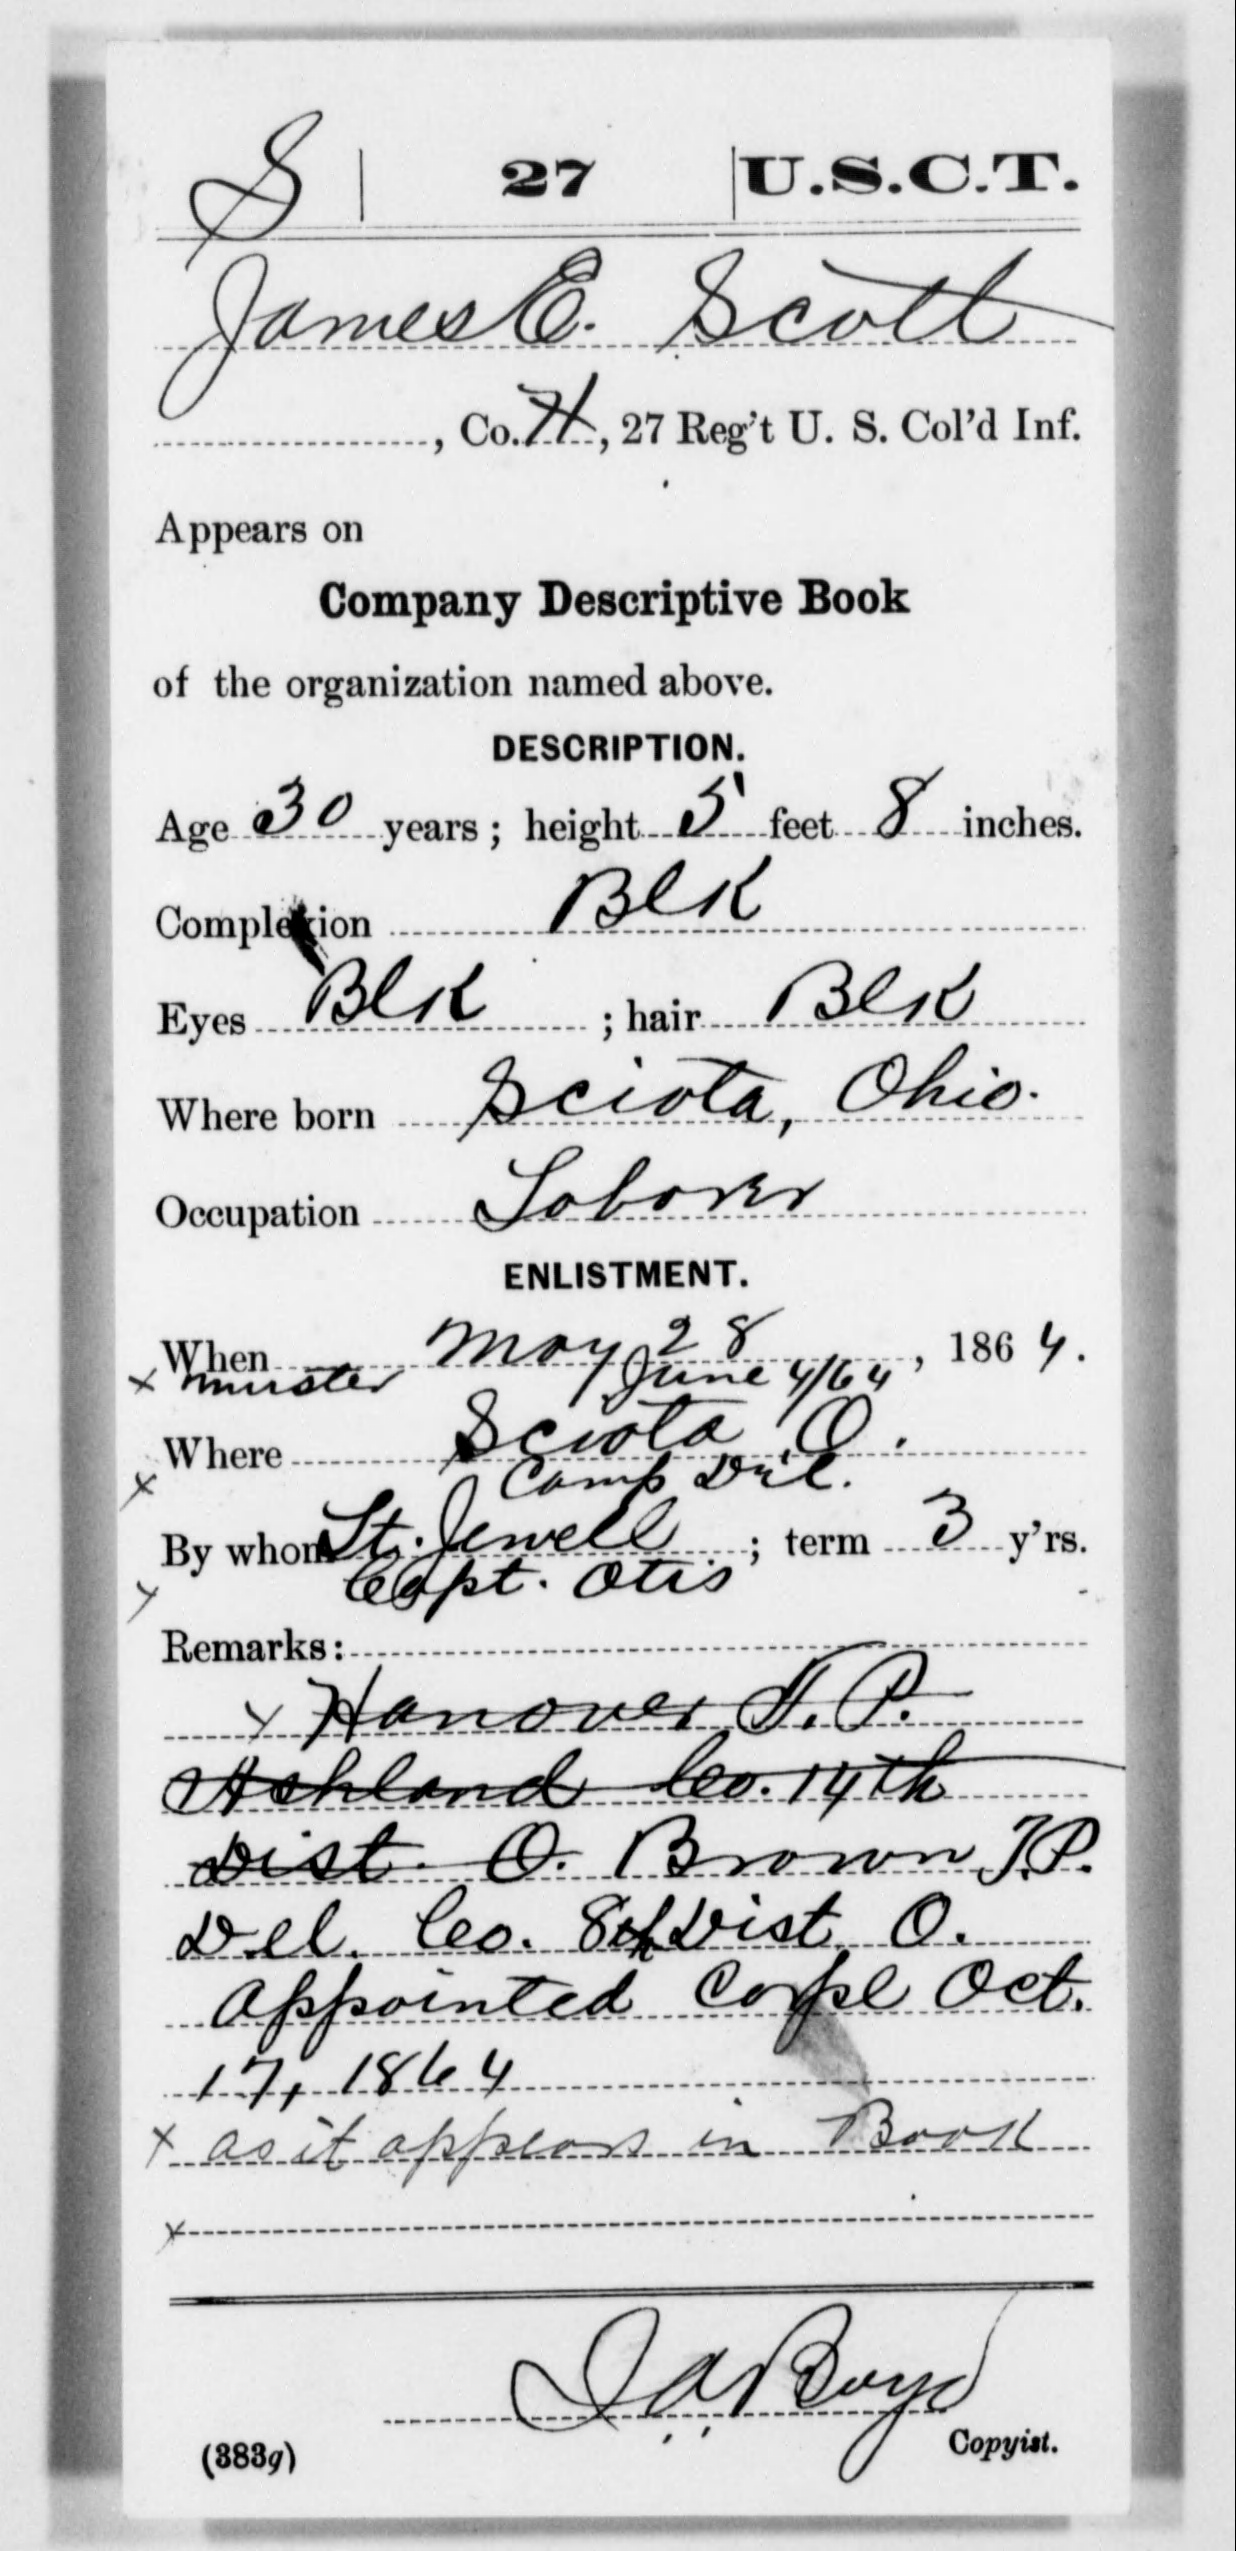 S | 27 | U.S.C.T.
James E. Scott
, Co. H, 27 Reg't U. S. Col'd Inf.
Appears on
Company Descriptive Book
of the organization named above.
DESCRIPTION.
Age 30 years; height 5 feet 8 inches.
Complexion Blk
Eyes Blk ; hair Blk
Where born Sciota, Ohio.
Occupation Laborer
ENLISTMENT.
When May 28, 1864.
x muster June 4/64
Where Sciota O.
x Camp Del.
By whom Lt. Jewell ; term 3 y'rs.
x Capt. Otis
Remarks:
x Hanover T.P.
Ashland Co. 14th
Dist. O. Brown T.P.
Del. Co. 8th Dist. O.
appointed Corpl Oct.
17, 1864
x as it appears in Book
x
Boyd
Copyist.
(383g)